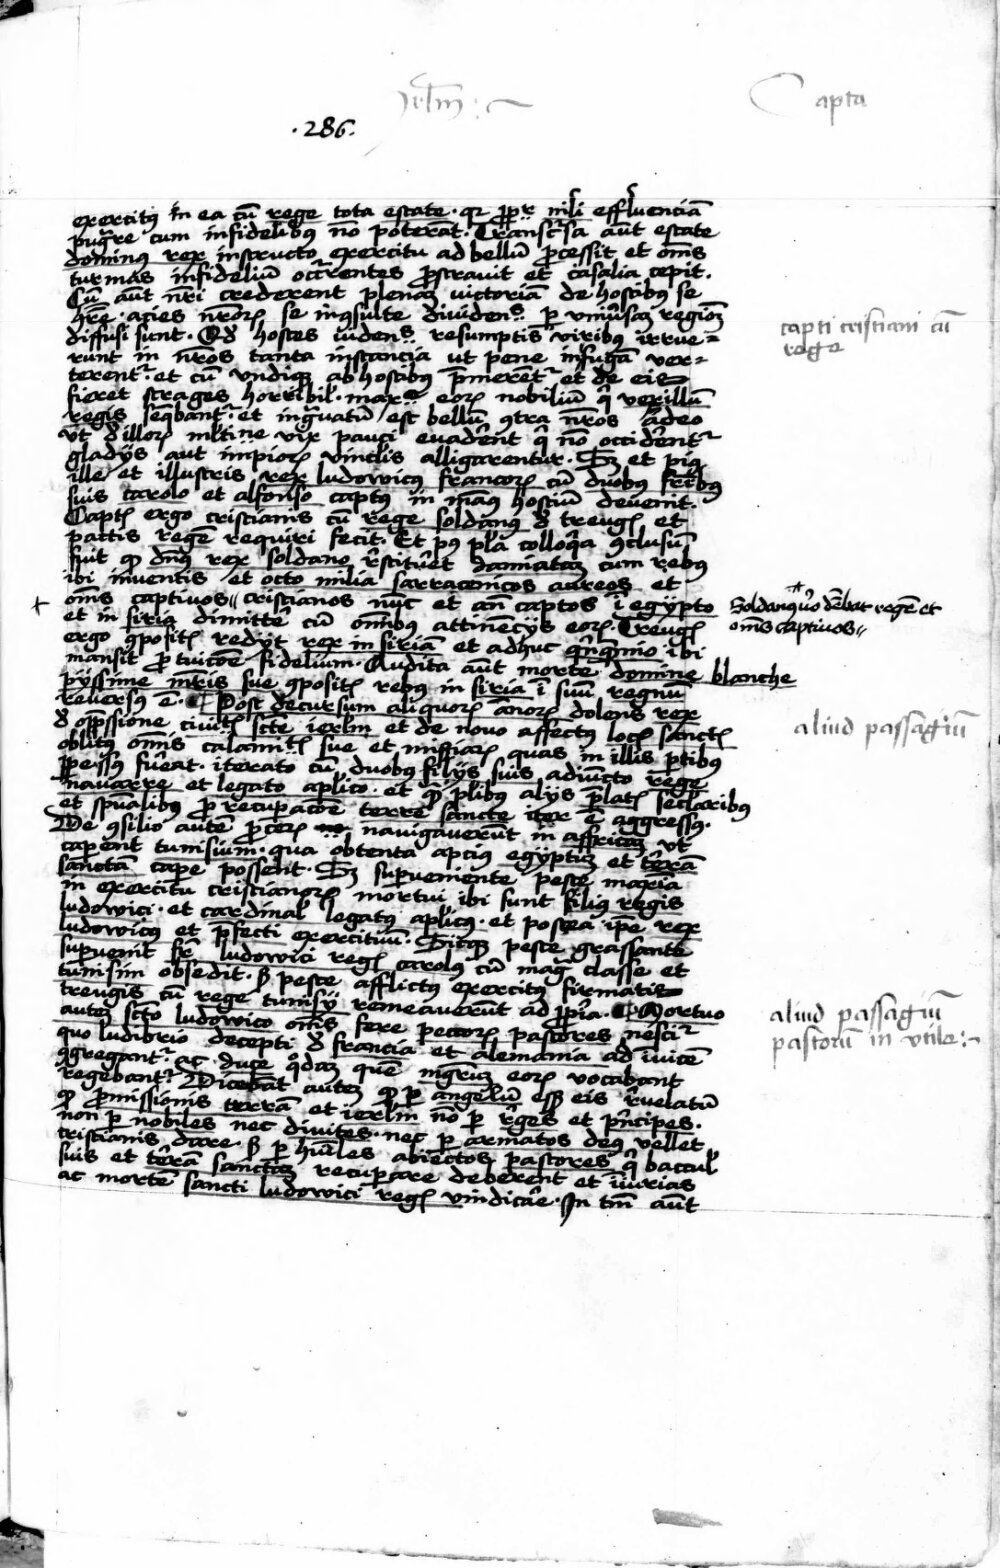 Jrlm̄ :~
Capta
.286.
exercitꝰ in ea cū rege tota estate · qꝛ ꝓpt̄ nili effluenciā
pugͣre cum infidelibus nō poterāt. Transc̄sa aūt estate
dominus rex instructo exercitu ad bellū ꝓcessit et om̄s
turmas infideliū occͬrentes ꝓstravit et casalia cepit.
Cū aūt nr̄i crederent plenaꝫ victoriā de hostibus se
acies nr̄orꝫ se inꝯsulte dividens ꝑ vniūsaꝫ regionē
diffusi sunt. Qd̄ hostes videns resumptis viribus irrue=
runt in nr̄os tanta instancia ut pene in fugā ver=
terent᷑ · et cū vndiqꝫ ab hostibus p̄merēt᷑ et de eis
fieret strages horribil̄ · maxͤ eorꝫ nobiliū qͥ vexillū
regis seqͣbant᷑ · et ingͣvatū est bellū ꝯtra nr̄os adeo
vt illorꝫ vix pauci evadēnt qͥ nō occidēnt᷑
gladijs aut impiorꝫ vinclis alligarentur. Sꝫ et piꝰ
ille et illustris rex ludowicus francorꝫ cū duobus fr̄ibꝰ
suis carolo et alfonso captꝰ in manꝰ hostiū devenit.
Captꝭ ergo cristianis cū rege soldanus d̄ treugꝭ et
pactis regē requiri fecit. Et pꝰ pl̄a colloqͥa ꝯclusū
fuit qͦ dn̄s rex soldano rͤstitūet damiataꝫ cum rebus
ibi inventis et octo milia sarracenicos aureos et
om̄s captivos // cristianos nūc et an̄ captos ī egypto
et in siria dimittē cū om̄ibus attinēcijs eorꝫ. Treugꝭ
ergo ꝯpositꝭ redijt rex in siriā et adhuc qͥnqͤnnio ibi
mansit ꝓ tuicōe fidelium. Audita aūt morte domine blanche
pyssime mr̄is sue ꝯpositꝭ rebus in siria ī suū regnū
reversꝰ ē. ¶ Post decursum aliquorꝫ annorꝫ dolens rex
d̄ opp̄ssione civitꝭ sctē ierlm̄ et de novo affectꝰ locꝭ sanctꝭ
oblitus om̄is calamitꝭ sue et miseriarꝫ quas in illis ꝑtibus
ꝑpessꝰ fūeat · iterato cū duobus filijs suis adiūcto rege
navarre et legato apl̄ico · et qͣꝫ pl̄ibus alijs p̄latꝭ seclaribus
et spūalibus ꝓ recuperacōe terre sancte iter ē aggressꝰ.
De ꝯsilio autē ꝓcerꝫ navigaverūt in affricaꝫ vt
capent tunisium · qua obtenta apcius egyptū et terrā
sanctā capͤ possent. Sꝫ suꝑveniente peste maxīa
in exercitu cristianorꝫ mortui ibi sunt filiꝰ regis
ludowici · et cardinal̄ legatus apl̄icꝰ · et postea ip̄e rex
ludowicus et p̄fecti exercituū. Sitqꝫ peste grassante
suꝑvenit fr̄ ludowici regꝭ carolꝰ cū magͣ classe et
tunisim obsedit. Sꝫ peste afflictus exercitus firmatis
treugis cū rege tunisij remeaverūt ad ꝓpͥa. ¶ Mortuo
autē scto ludowico om̄s fere pecorꝫ pastores nesciͬ
quo ludibrio decepti d̄ francia et alemania ad īvicē
ꝯgregant᷑ ac duce qͦdaꝫ quē mgrm̄ eorꝫ vocabant
regebant᷑. Dicebāt autē qͦ ꝑ angelū esset eis rͤvelatū
qͦ ꝓmissionis terrā et ierlm̄ nō ꝑ rͤges et pͥncipes.
non ꝑ nobiles nec divites · nec ꝑ armatos deꝰ vellet
cristianis dare. Sꝫ ꝑ hūiles abiectos pastores qͥ baculꝭ
suis et terrā sanctaꝫ recuperare deberent et iniurias
ac mortē sancti ludowici regꝭ vindicāe. In tm̄ aūt
capti cristiani cū
rege
+ Soldanꝰ v̊o dēbat regē et
om̄s captivos //
aliud passagiū
aliud passagiū
pastorū in vtile :~